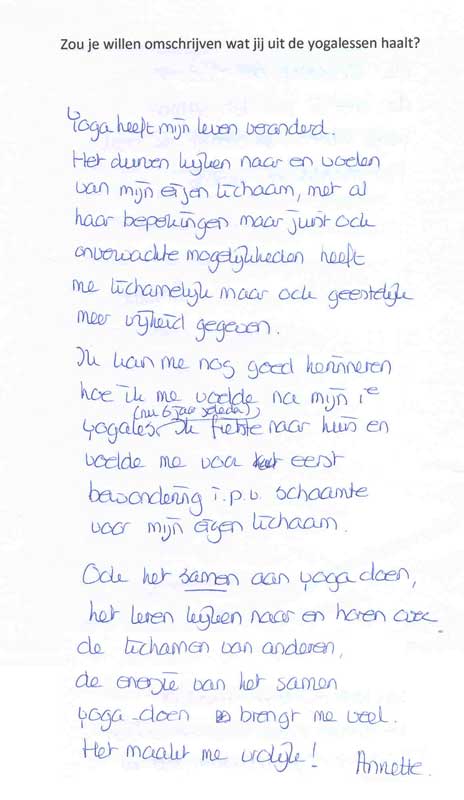 Zou je willen omschrijven wat jij uit de yogalessen haalt?
Yoga heeft mijn leven veranderd.
Het durven kijken naar en voelen
van mijn eigen lichaam, met al
haar beperkingen maar juist ook
onverwachte mogelijkheden heeft
me lichamelijk maar ook geestelijk
meer vrijheid gegeven.
Ik kan me nog goed herinneren
hoe ik me voelde na mijn 1e
(nu 6 jaar geleden)
yogales. Ik fietste naar huis en
voelde me voor het eerst
bewondering i.p.v. schaamte
voor mijn eigen lichaam.
Ook het samen aan yoga doen,
het leren kijken naar en horen over
de lichamen van anderen,
de energie van het samen
yoga-doen brengt me veel.
Het maakt me vrolijk! Annette.